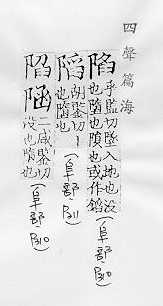 四聲篇海
陷 乎監切墜入地也没也墮也隤也或作錎(阜部 P310)
胡鑒切墮也(阜部 P311)
陷 二咸鑒切没也墮也(阜部 P310)